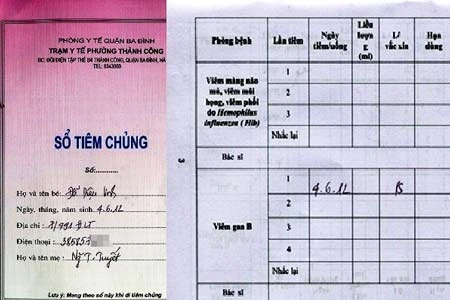 PHÒNG Y TẾ QUẬN BA ĐÌNH
TRẠM Y TẾ PHƯỜNG THÀNH CÔNG
TEL: 8343000
SỔ TIÊM CHỦNG
Số:............
Họ và tên bé:
Ngày, tháng, năm sinh 4.6.12
Địa chỉ :
Điện thoại : 385857
Họ và tên mẹ : Ng T. Tuyết
Lưu ý: Mang theo sổ này khi đi tiêm chủng
3
Phòng bệnh Lần tiêm Ngày tiêm/uống Liều lượng (ml) Lí vắc xin Hạn dùng
Viêm màng não mủ, viêm mũi họng, viêm phổi do Hemophilus influenzea ( Hib)
1
2
3
Nhắc lại
Bác sĩ
Viêm gan B
1 4.6.12 B
2
3
4
Nhắc lại
Bác sĩ